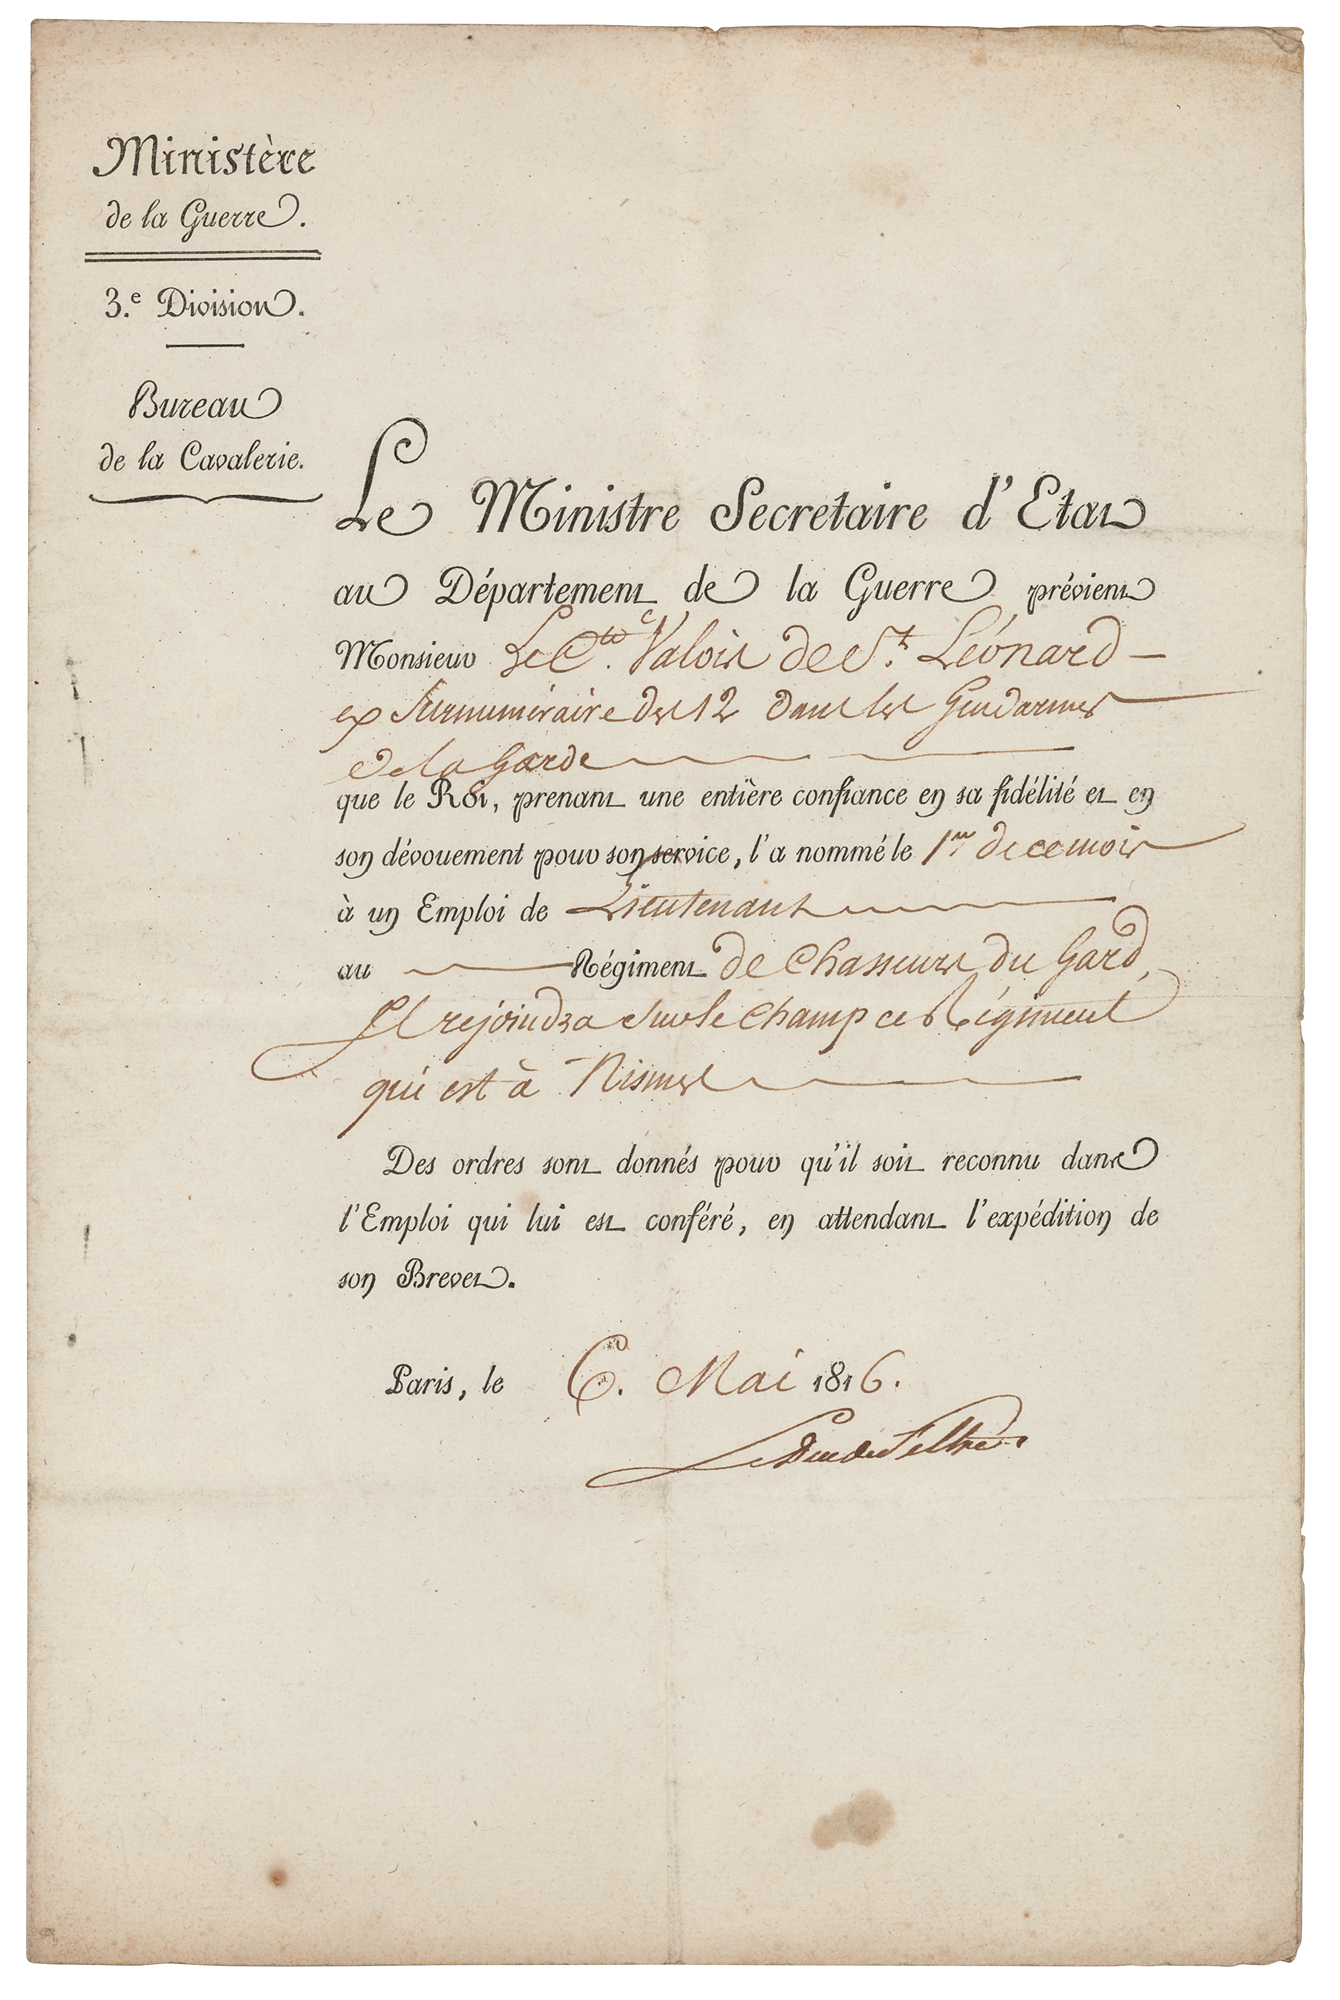 Ministère
de la Guerre.
3.e Division.
Bureau
de la Cavalerie.
Le Ministre Secretaire d'Etat
au Département de la Guerre prévient
Monsieur Le Cte. Valois de St. Léonard –
ex Surnuméraire des 12 dans les Gendarmes
de la Garde
que le Roi, prenant une entière confiance en sa fidélité et en
son dévouement pour son service, l'a nommé le 1er de ce mois
à un Emploi de Lieutenant
au Régiment de Chasseurs du Gard,
Il rejoindra sur le champ ce Régiment
qui est à Nismes
Des ordres sont donnés pour qu'il soit reconnu dans
l'Emploi qui lui est conféré, en attendant l'expédition de
son Brevet.
Paris, le 6. Mai 1816.
Le Duc de Feltre